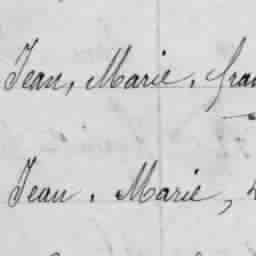 Jean, Marie, Fran
Jean, Marie,